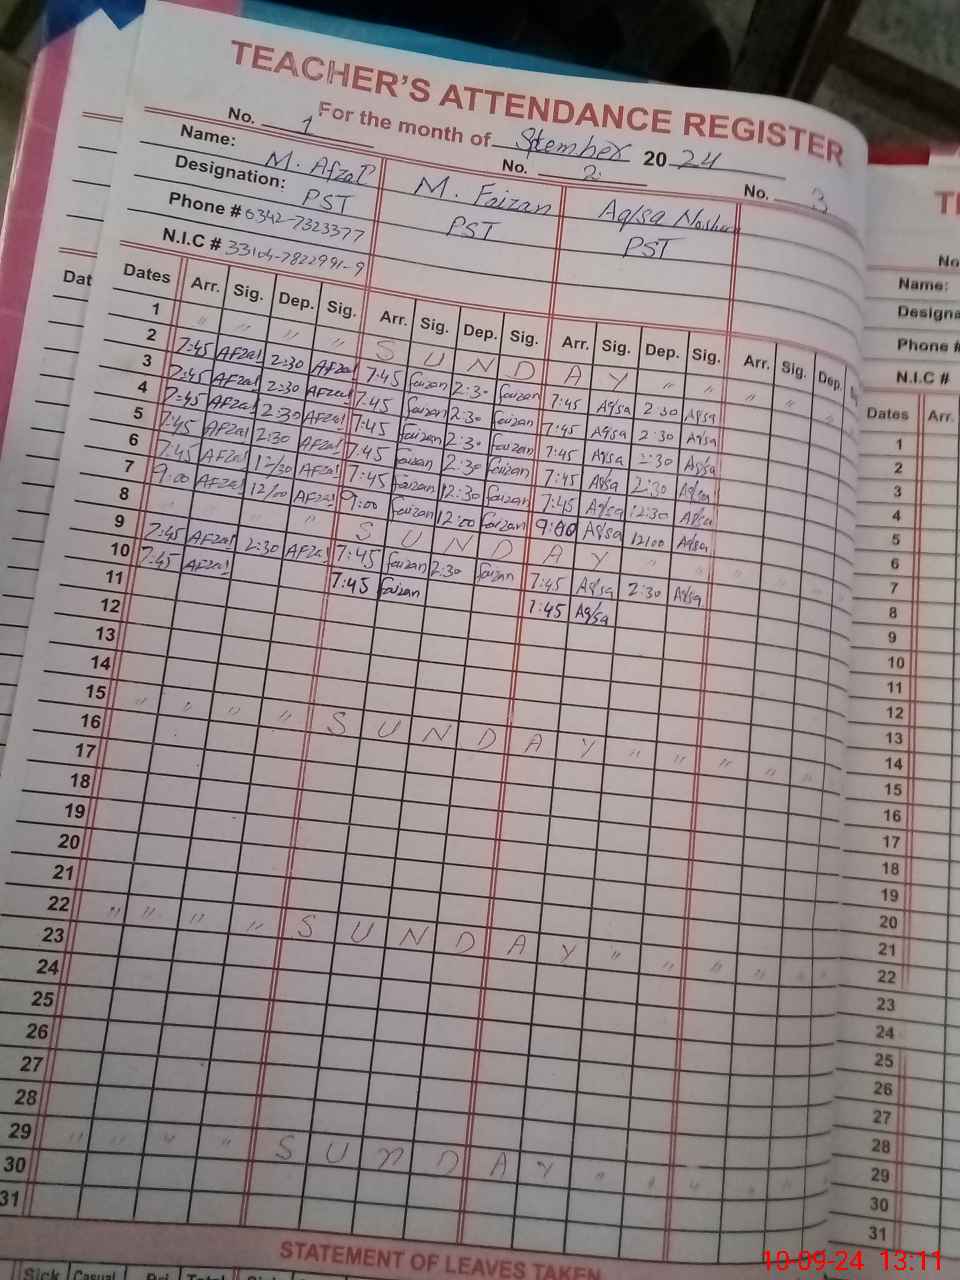 TEACHER'S ATTENDANCE REGISTER
For the month of Stember 2024
No. 1 No. 2 No. 3
Name: M. Afzal M. Faizan Aqsa
Designation: PST PST PST
Phone # 0342-7323377
N.I.C #
Dates Arr. Sig. Dep. Sig. Arr. Sig. Dep. Sig. Arr. Sig. Dep. Sig. Arr. Sig. Dep.
1 " " " " S U N D A Y " " " " "
2 7:45 Afzal 2:30 Afzal 7:45 faizan 2:30 faizan 7:45 Aqsa 2:30 Aqsa
3 7:45 Afzal 2:30 Afzal 7:45 faizan 2:30 faizan 7:45 Aqsa 2:30 Aqsa
4 7:45 Afzal 2:30 Afzal 7:45 faizan 2:30 faizan 7:45 Aqsa 2:30 Aqsa
5 7:45 Afzal 2:30 Afzal 7:45 faizan 2:30 faizan 7:45 Aqsa 2:30 Aqsa
6 7:45 Afzal 12/30 Afzal 7:45 faizan 12:30 faizan 7:45 Aqsa 12:30 Aqsa
7 9:00 Afzal 12/00 Afzal 9:00 faizan 12:00 faizan 9:00 Aqsa 12:00 Aqsa
8 " " " " S U N D A Y " " " "
9 7:45 Afzal 2:30 Afzal 7:45 faizan 2:30 faizan 7:45 Aqsa 2:30 Aqsa
10 7:45 Afzal 7:45 faizan 7:45 Aqsa
11
12
13
14
15 " " " " S U N D A Y " " " " "
16
17
18
19
20
21
22 " " " " S U N D A Y " " " " "
23
24
25
26
27
28
29 " " " " S U N D A Y " " " " "
30
31
STATEMENT OF LEAVES TAKEN
Sick Casual Total
Dat
No
Name:
Designa
Phone #
N.I.C #
Dates Arr.
1
2
3
4
5
6
7
8
9
10
11
12
13
14
15
16
17
18
19
20
21
22
23
24
25
26
27
28
29
30
31
10-09-24 13:11